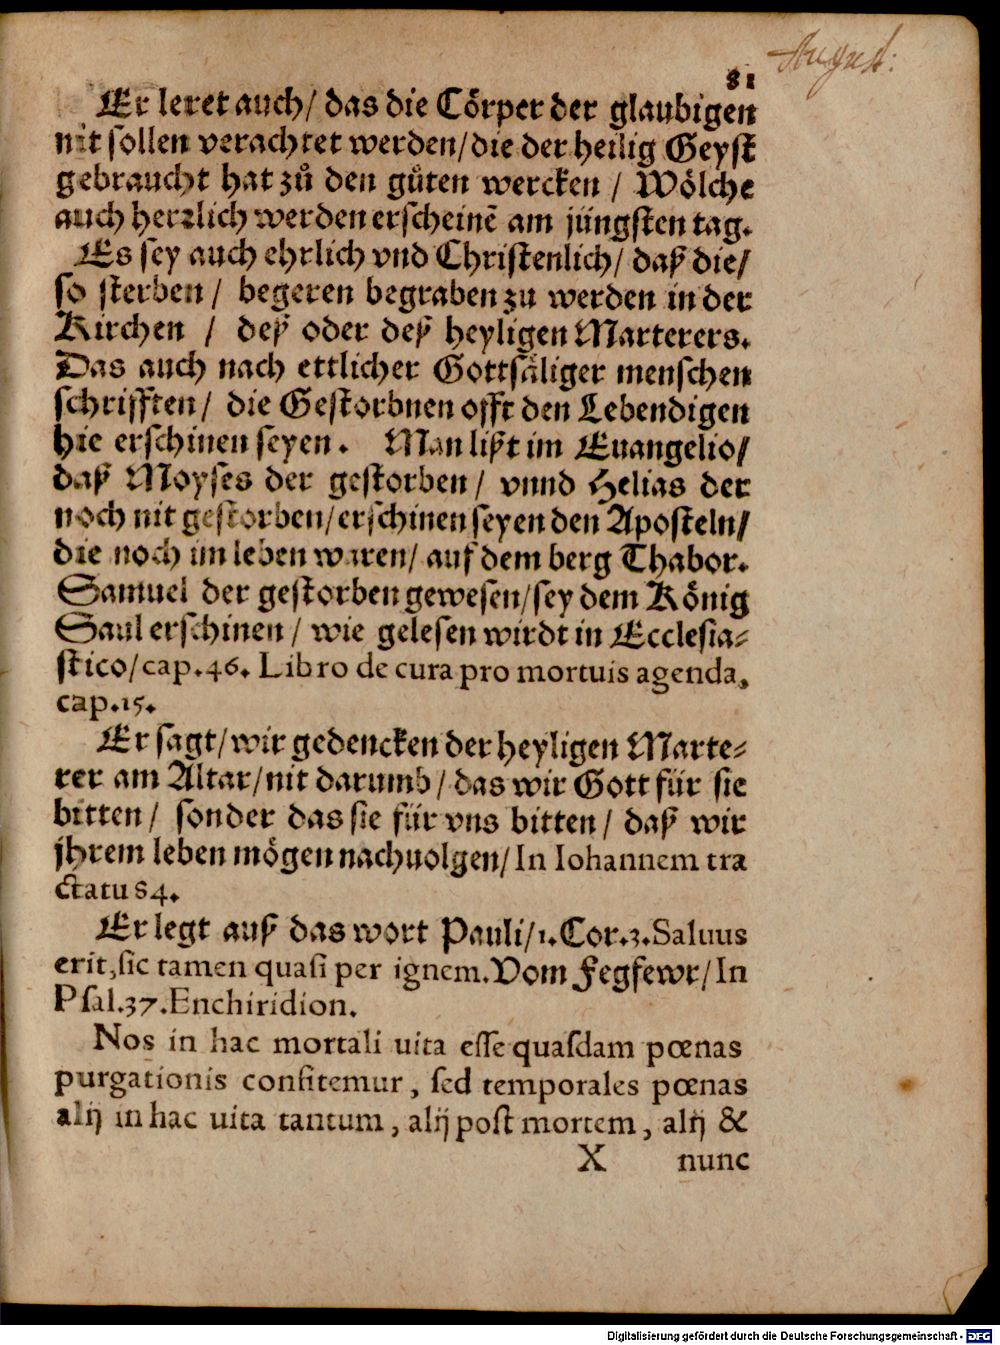 August:
81
Er leret auch/ das die Cörper der glaubigen
nit sollen verachtet werden/die der heilig Geyst
gebraucht hat zů den gůten wercken / Wölche
auch herzlich werden erscheinẽ am jüngsten tag.
Es sey auch ehrlich vnd Christenlich/ daß die/
so sterben / begeren begraben zu werden in der
Kirchen / deß oder deß heyligen Marterers.
Das auch nach ettlicher Gottsäliger menschen
schrifften/ die Gestorbnen offt den Lebendigen
hie erschinen seyen. Man lißt im Euangelio/
daß Moyses der gestorben/ vnnd Helias der
noch nit gestorben/erschinen seyen den Aposteln/
die noch im leben waren/ auf dem berg Thabor.
Samuel der gestorben gewesen/sey dem König
Saul erschinen / wie gelesen wirdt in Ecclesia-
stico/cap.46. Libro de cura pro mortuis agenda,
cap.15.
Er sagt/wir gedencken der heyligen Marte-
rer am Altar/nit darumb/das wir Gott für sie
bitten/ sonder das sie für vns bitten/ daß wir
jhrem leben mögen nachuolgen/In Iohannem tra
ctatu 84.
Er legt auß das wort Pauli/1.Cor.3.Saluus
erit, sic tamen quasi per ignem. Vom Fegfewr/In
Psal.37.Enchiridion.
Nos in hac mortali uita esse quasdam pœnas
purgationis confitemur, sed temporales pœnas
alij in hac uita tantum, alij post mortem, alij &
X nunc
Digitalisierung gefördert durch die Deutsche Forschungsgemeinschaft - DFG